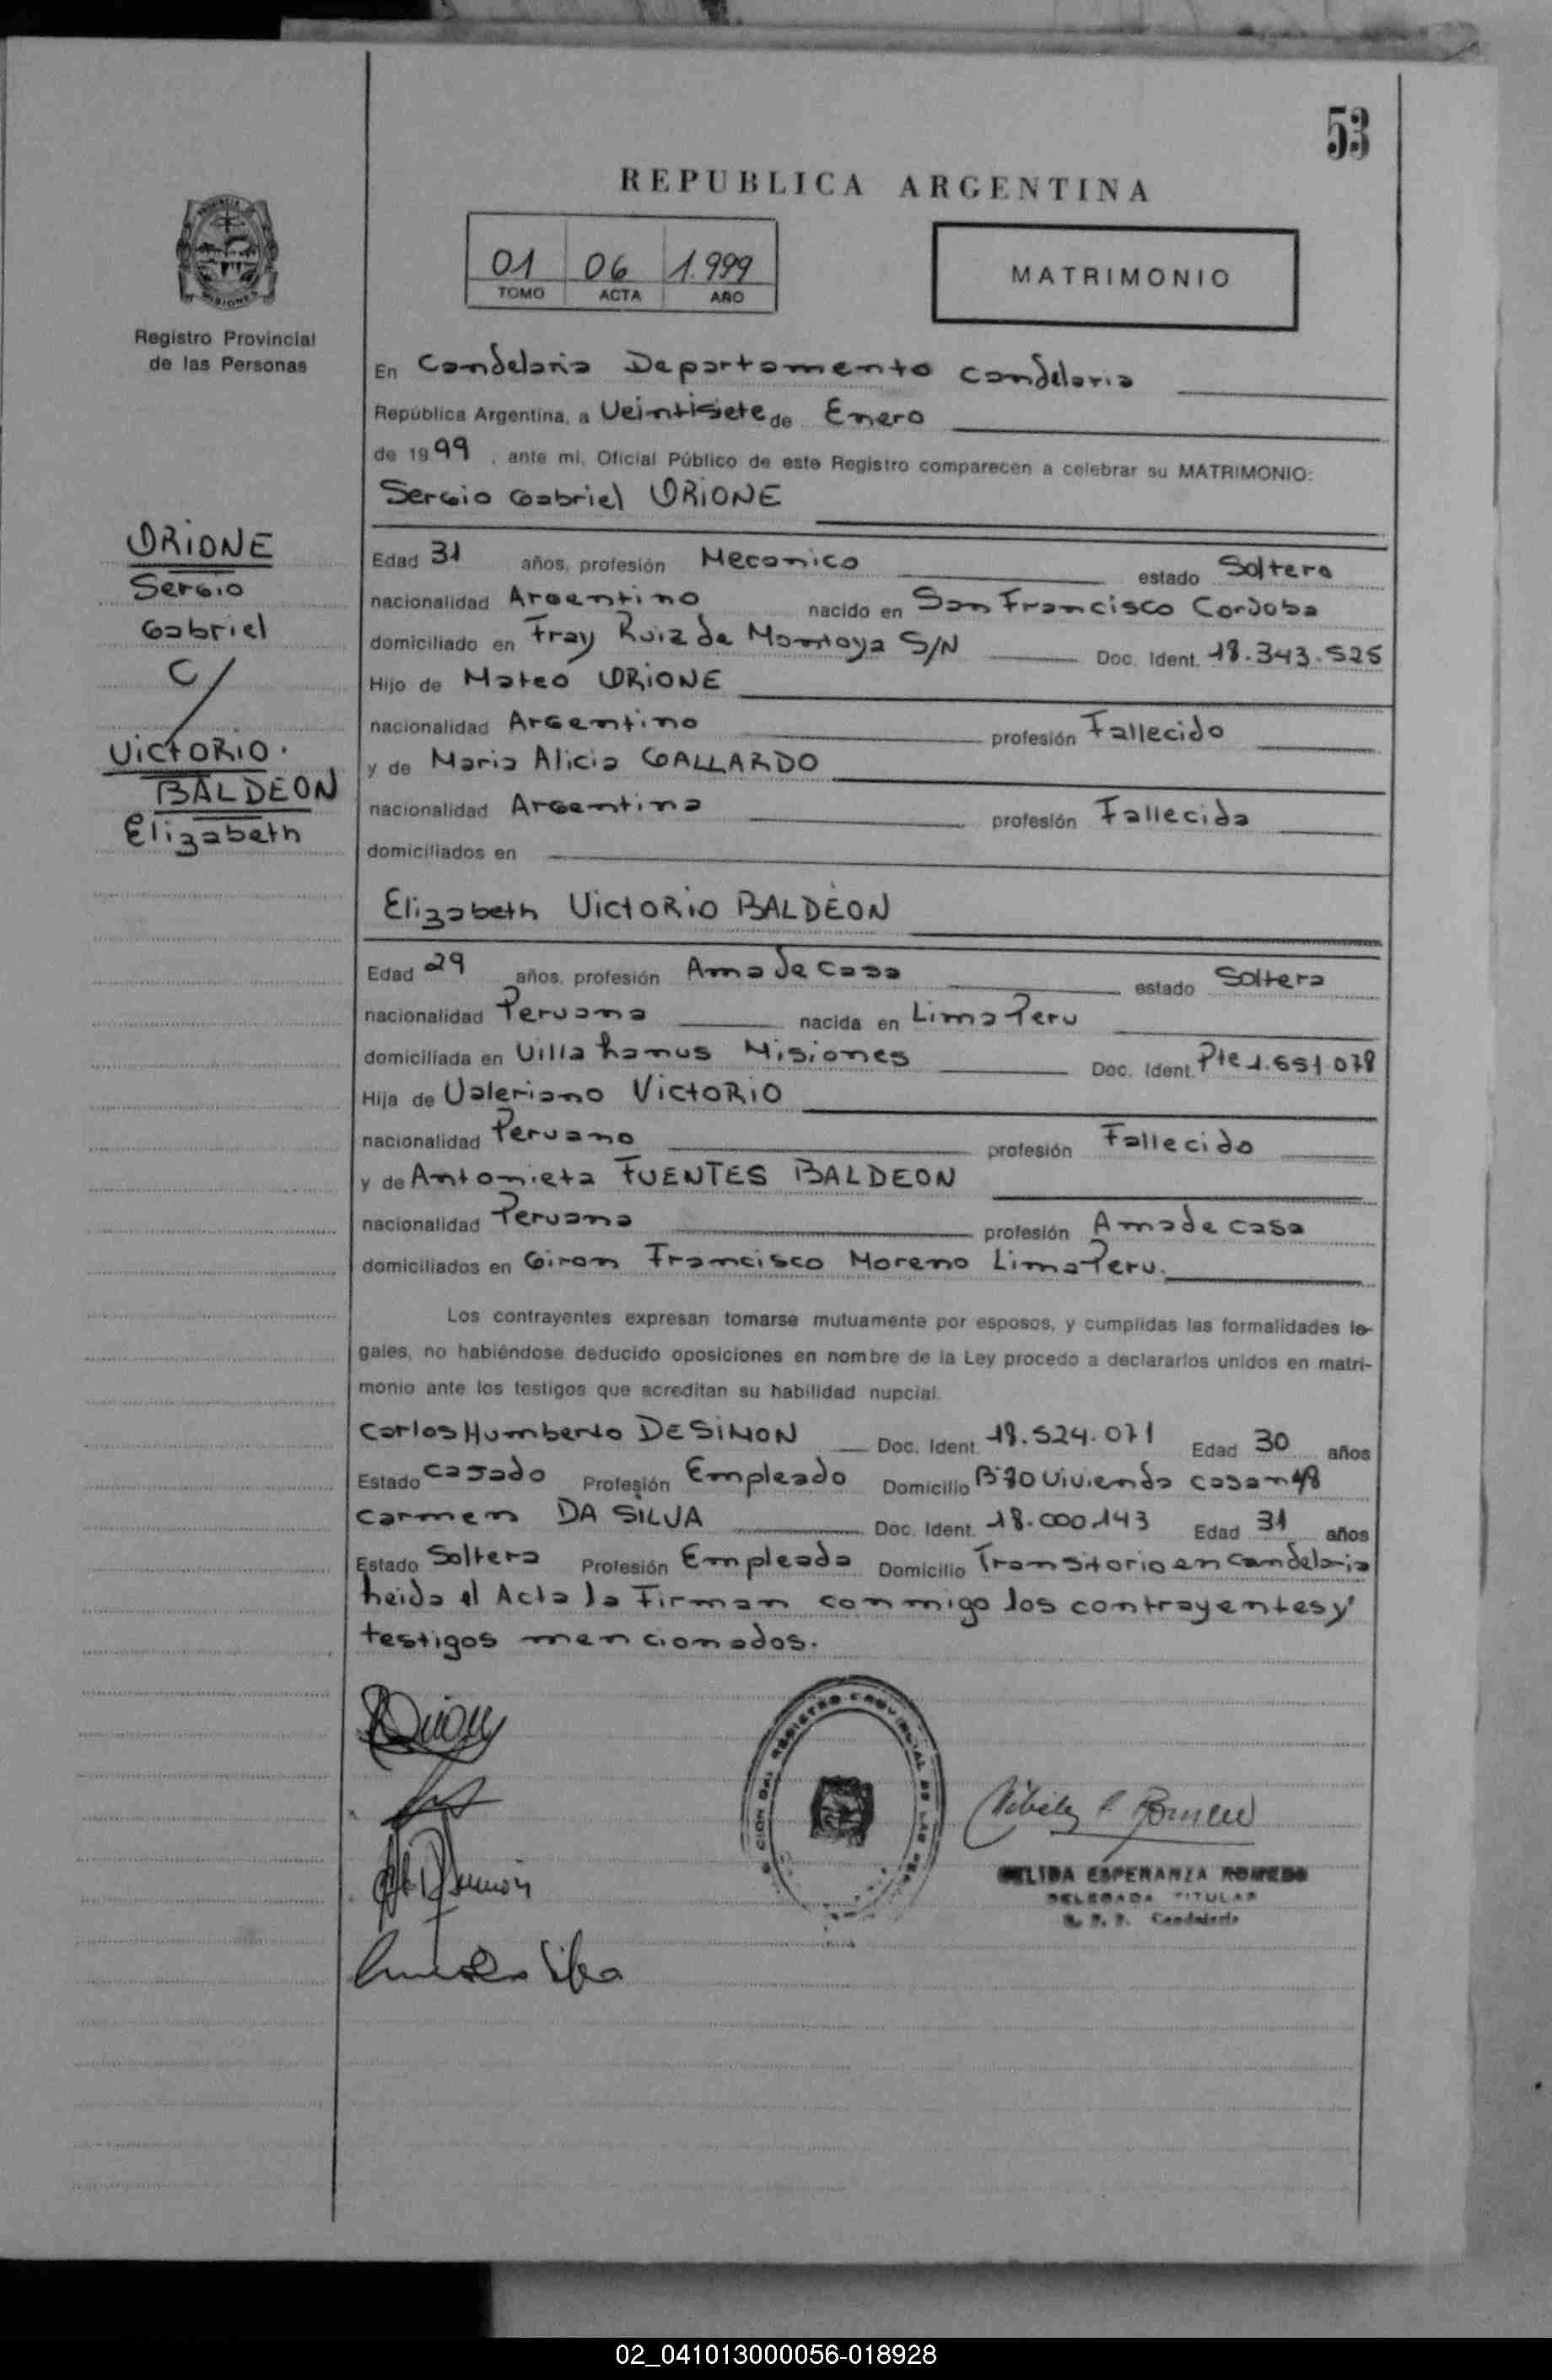 53
REPUBLICA ARGENTINA
01 06 1.999
TOMO ACTA AÑO
MATRIMONIO
PROVINCIA
MISIONES
Registro Provincial
de las Personas
En Candelaria Departamento Candelaria
República Argentina, a Veintisiete de Enero
de 1999, ante mi, Oficial Público de este Registro comparecen a celebrar su MATRIMONIO:
Sergio Gabriel ORIONE
ORIONE
Sergio
Gabriel
C/
VICTORIO.
BALDEON
Elizabeth
Edad 31 años, profesión Mecanico estado Soltero
nacionalidad Argentino nacido en San Francisco Cordoba
domiciliado en Fray Ruiz de Montoya S/N Doc. Ident. 18.343.525
Hijo de Mateo ORIONE
nacionalidad Argentino profesión Fallecido
y de Maria Alicia GALLARDO
nacionalidad Argentina profesión Fallecida
domiciliados en
Elizabeth VICTORIO BALDEON
Edad 29 años, profesión Ama de Casa estado Soltera
nacionalidad Peruana nacida en Lima Peru
domiciliada en Villa Lanus Misiones Doc. Ident. Pte 1.651.078
Hija de Valeriano VICTORIO
nacionalidad Peruano profesión Fallecido
y de Antonieta FUENTES BALDEON
nacionalidad Peruana profesión Ama de casa
domiciliados en Giron Francisco Moreno Lima Peru.
Los contrayentes expresan tomarse mutuamente por esposos, y cumplidas las formalidades le-
gales, no habiéndose deducido oposiciones en nombre de la Ley procedo a declararlos unidos en matri-
monio ante los testigos que acreditan su habilidad nupcial.
Carlos Humberto DE SIMON Doc. Ident. 18.524.071 Edad 30 años
Estado Casado Profesión Empleado Domicilio Bº 80 Vivienda casa nº 48
Carmen DA SILVA Doc. Ident. 18.000.143 Edad 31 años
Estado Soltera Profesión Empleada Domicilio Transitorio en Candelaria
Leida el Acta la Firman conmigo los contrayentes y
testigos mencionados.
ESPERANZA ROMERO
DELEGADA TITULAR
R. P. P. Candelaria
02_041013000056-018928